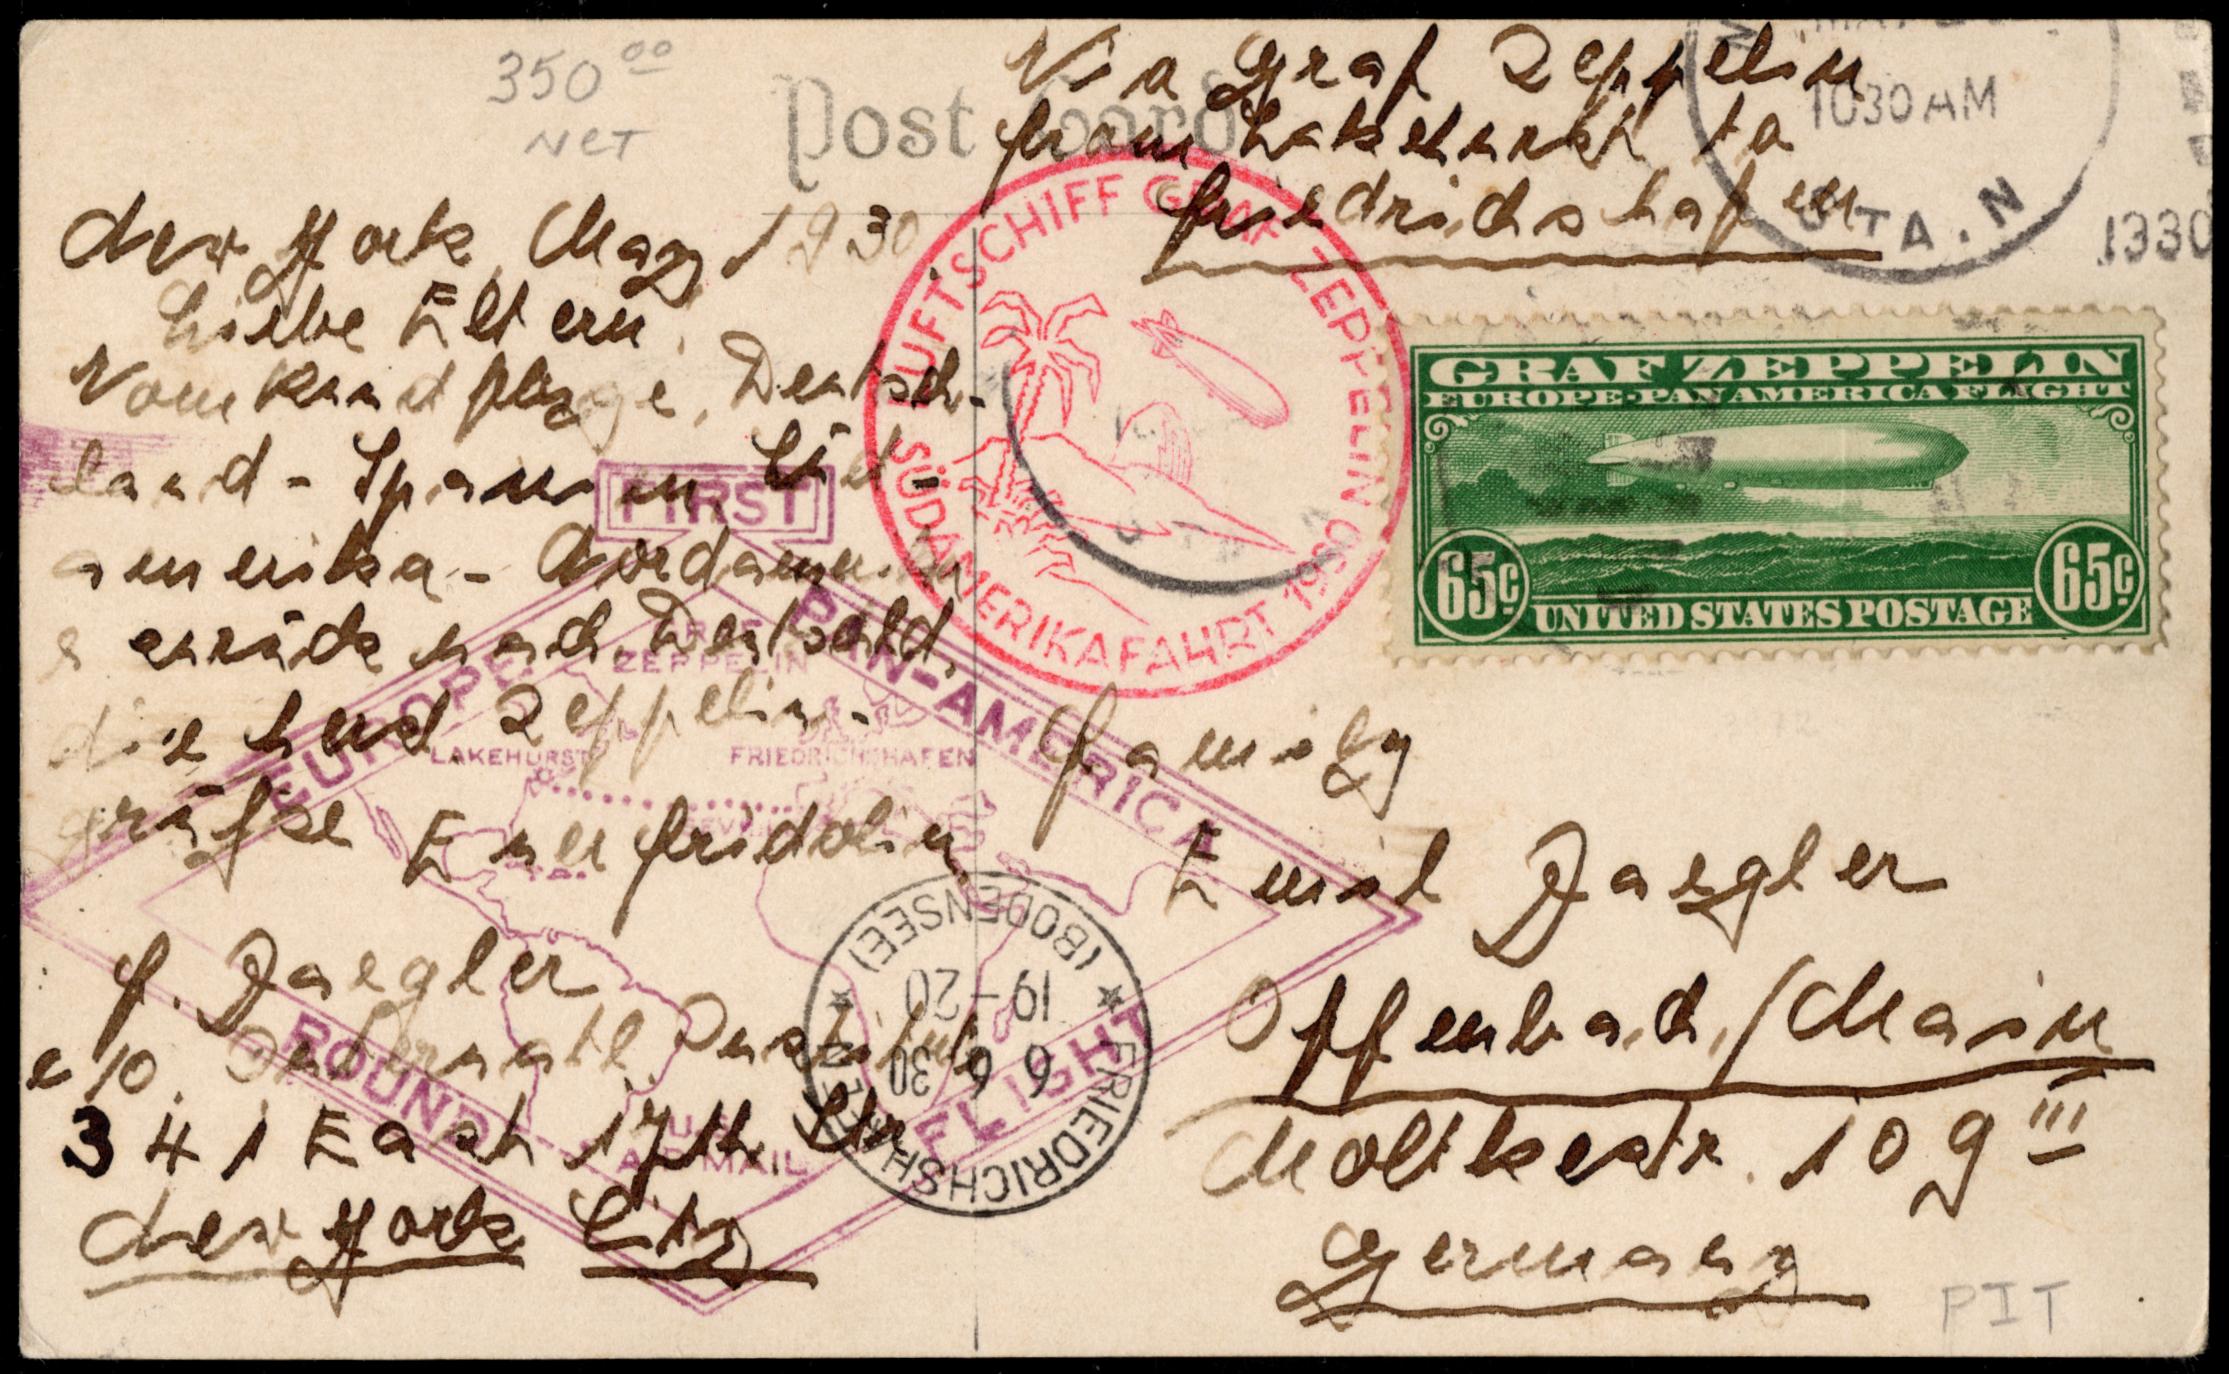 350 00
NET
Post Card
Via Graf Zeppelin
from Lakehurst to
Friedrichshafen
1030 AM
STA. N
1930
New York, May 1930
Liebe Eltern,
Vom Rundfluge, Deutsch-
land - Spanien Süd
amerika - Nordamerika
zurück nach Deutschld.
die herzl Zeppelin-
grüße Euer Fridolin
F. Daegler
c/o. Internatl. Institute
341 East 17th Str
New York City
LUFTSCHIFF GRAF ZEPPELIN
SÜDAMERIKAFAHRT 1930
GRAF ZEPPELIN
EUROPE-PAN AMERICA FLIGHT
65¢
65¢
UNITED STATES POSTAGE
FIRST
EUROPE PAN-AMERICA
GRAF
ZEPPELIN
LAKEHURST
FRIEDRICHSHAFEN
SEVILLE
ROUND FLIGHT
U.S.
AIR MAIL
FRIEDRICHSHAFEN
(BODENSEE)
6 6 30
19-20
Family
Emil Daegler
Offenbach/Main
Moltkestr. 109 III
Germany
PIT